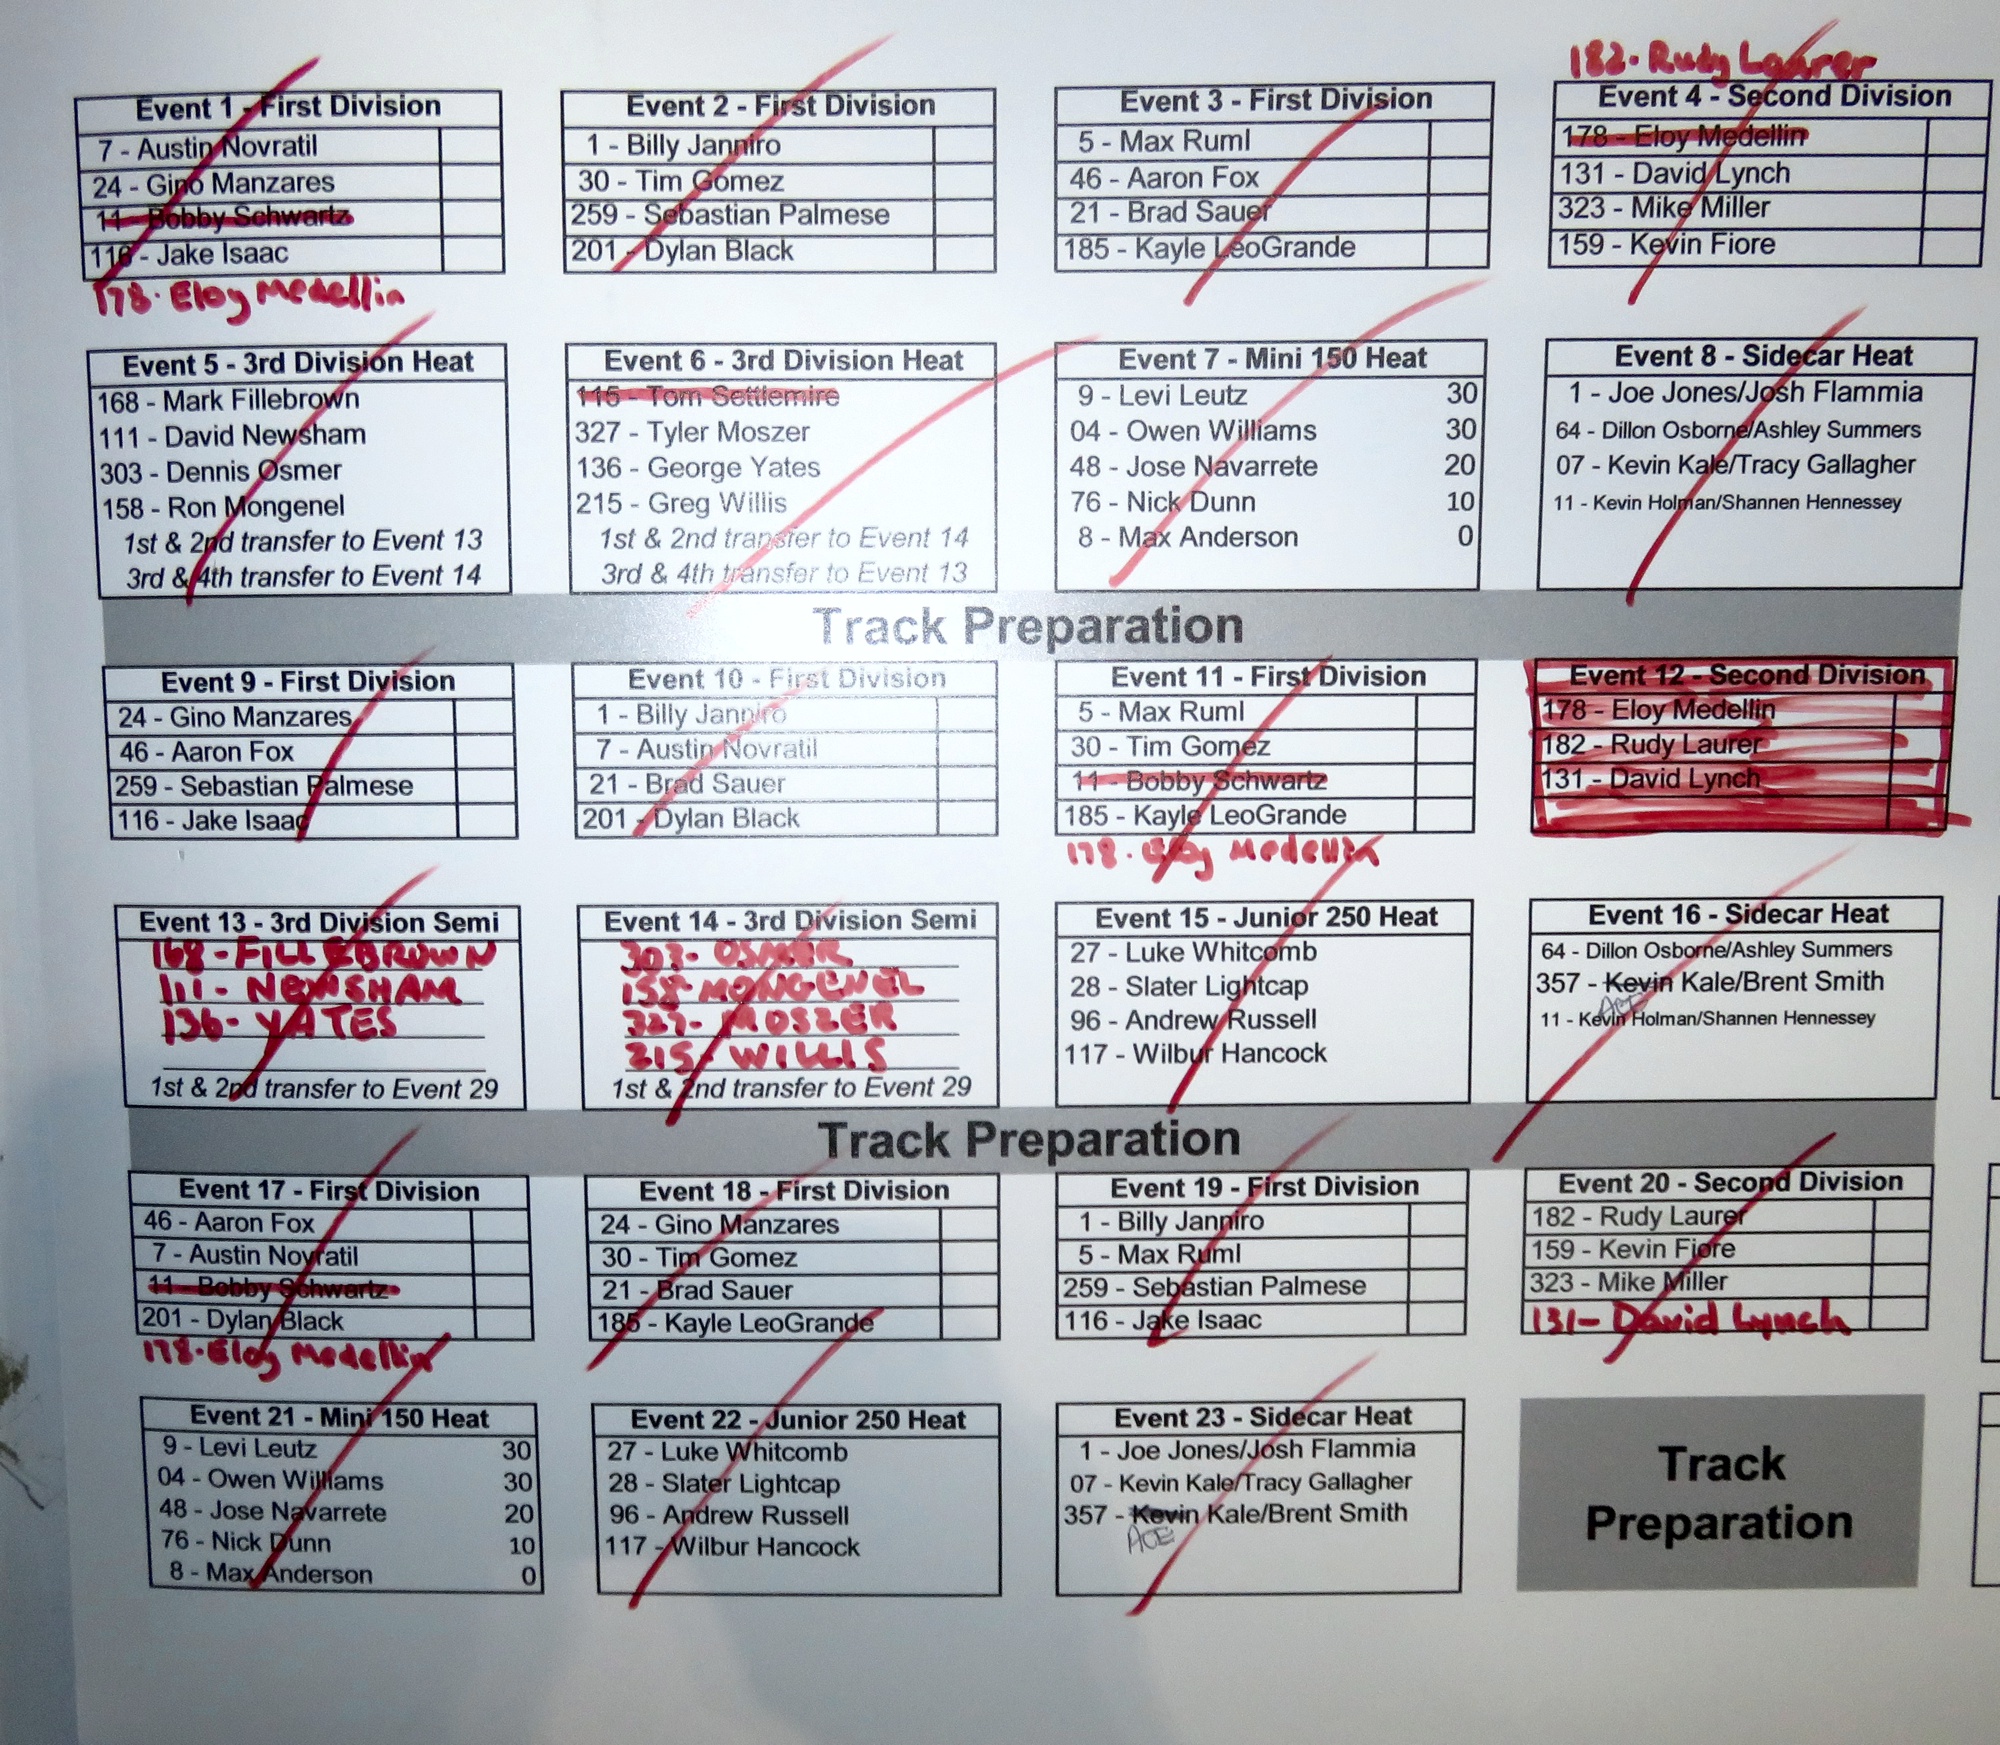 182. Rudy Laurer
Event 1 - First Division
7 - Austin Novratil
24 - Gino Manzares
11 - Bobby Schwartz
116 - Jake Isaac
178. Eloy Medellin
Event 2 - First Division
1 - Billy Janniro
30 - Tim Gomez
259 - Sebastian Palmese
201 - Dylan Black
Event 3 - First Division
5 - Max Ruml
46 - Aaron Fox
21 - Brad Sauer
185 - Kayle LeoGrande
Event 4 - Second Division
178 - Eloy Medellin
131 - David Lynch
323 - Mike Miller
159 - Kevin Fiore
Event 5 - 3rd Division Heat
168 - Mark Fillebrown
111 - David Newsham
303 - Dennis Osmer
158 - Ron Mongenel
1st & 2nd transfer to Event 13
3rd & 4th transfer to Event 14
Event 6 - 3rd Division Heat
115 - Tom Settlemire
327 - Tyler Moszer
136 - George Yates
215 - Greg Willis
1st & 2nd transfer to Event 14
3rd & 4th transfer to Event 13
Event 7 - Mini 150 Heat
9 - Levi Leutz 30
04 - Owen Williams 30
48 - Jose Navarrete 20
76 - Nick Dunn 10
8 - Max Anderson 0
Event 8 - Sidecar Heat
1 - Joe Jones/Josh Flammia
64 - Dillon Osborne/Ashley Summers
07 - Kevin Kale/Tracy Gallagher
11 - Kevin Holman/Shannen Hennessey
Track Preparation
Event 9 - First Division
24 - Gino Manzares
46 - Aaron Fox
259 - Sebastian Palmese
116 - Jake Isaac
Event 10 - First Division
1 - Billy Janniro
7 - Austin Novratil
21 - Brad Sauer
201 - Dylan Black
Event 11 - First Division
5 - Max Ruml
30 - Tim Gomez
11 - Bobby Schwartz
185 - Kayle LeoGrande
178. Eloy Medellin
Event 12 - Second Division
178 - Eloy Medellin
182 - Rudy Laurer
131 - David Lynch
Event 13 - 3rd Division Semi
168 - FILLEBROWN
111 - NEWSHAM
136 - YATES
1st & 2nd transfer to Event 29
Event 14 - 3rd Division Semi
303 - OSMER
158 - MONGENEL
327 - MOSZER
215 - WILLIS
1st & 2nd transfer to Event 29
Event 15 - Junior 250 Heat
27 - Luke Whitcomb
28 - Slater Lightcap
96 - Andrew Russell
117 - Wilbur Hancock
Event 16 - Sidecar Heat
64 - Dillon Osborne/Ashley Summers
357 - Kevin Kale/Brent Smith
ACE
11 - Kevin Holman/Shannen Hennessey
Track Preparation
Event 17 - First Division
46 - Aaron Fox
7 - Austin Novratil
11 - Bobby Schwartz
201 - Dylan Black
178. Eloy Medellin
Event 18 - First Division
24 - Gino Manzares
30 - Tim Gomez
21 - Brad Sauer
185 - Kayle LeoGrande
Event 19 - First Division
1 - Billy Janniro
5 - Max Ruml
259 - Sebastian Palmese
116 - Jake Isaac
Event 20 - Second Division
182 - Rudy Laurer
159 - Kevin Fiore
323 - Mike Miller
131 - David Lynch
Event 21 - Mini 150 Heat
9 - Levi Leutz 30
04 - Owen Williams 30
48 - Jose Navarrete 20
76 - Nick Dunn 10
8 - Max Anderson 0
Event 22 - Junior 250 Heat
27 - Luke Whitcomb
28 - Slater Lightcap
96 - Andrew Russell
117 - Wilbur Hancock
Event 23 - Sidecar Heat
1 - Joe Jones/Josh Flammia
07 - Kevin Kale/Tracy Gallagher
357 - Kevin Kale/Brent Smith
ACE
Track
Preparation